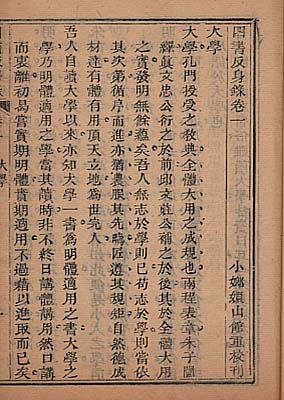 四書反身錄卷一
小嫏嬛山館重校刊
大學
大學孔門授受之教典全體大用之成規也兩程表章朱子闡
釋眞文忠公衍之於前邱文莊公補之於後其於全體大用
之實發明無餘蘊矣吾人無志於學則已苟志於學則當依
其次第循序而進亦猶農服其先疇匠遵其規矩自然德成
材達有體有用頂天立地為世完人
吾人自讀大學以來亦知大學一書為明體適用之書大學之
學乃明體適用之學當其讀時非不終日講體講用然口講
而衷離初曷嘗實期明體實期適用不過藉以進取而已矣
大學